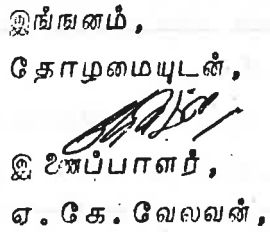 இங்ஙனம்,
தோழமையுடன்,
இணைப்பாளர்,
ஏ. கே. வேலவன்,